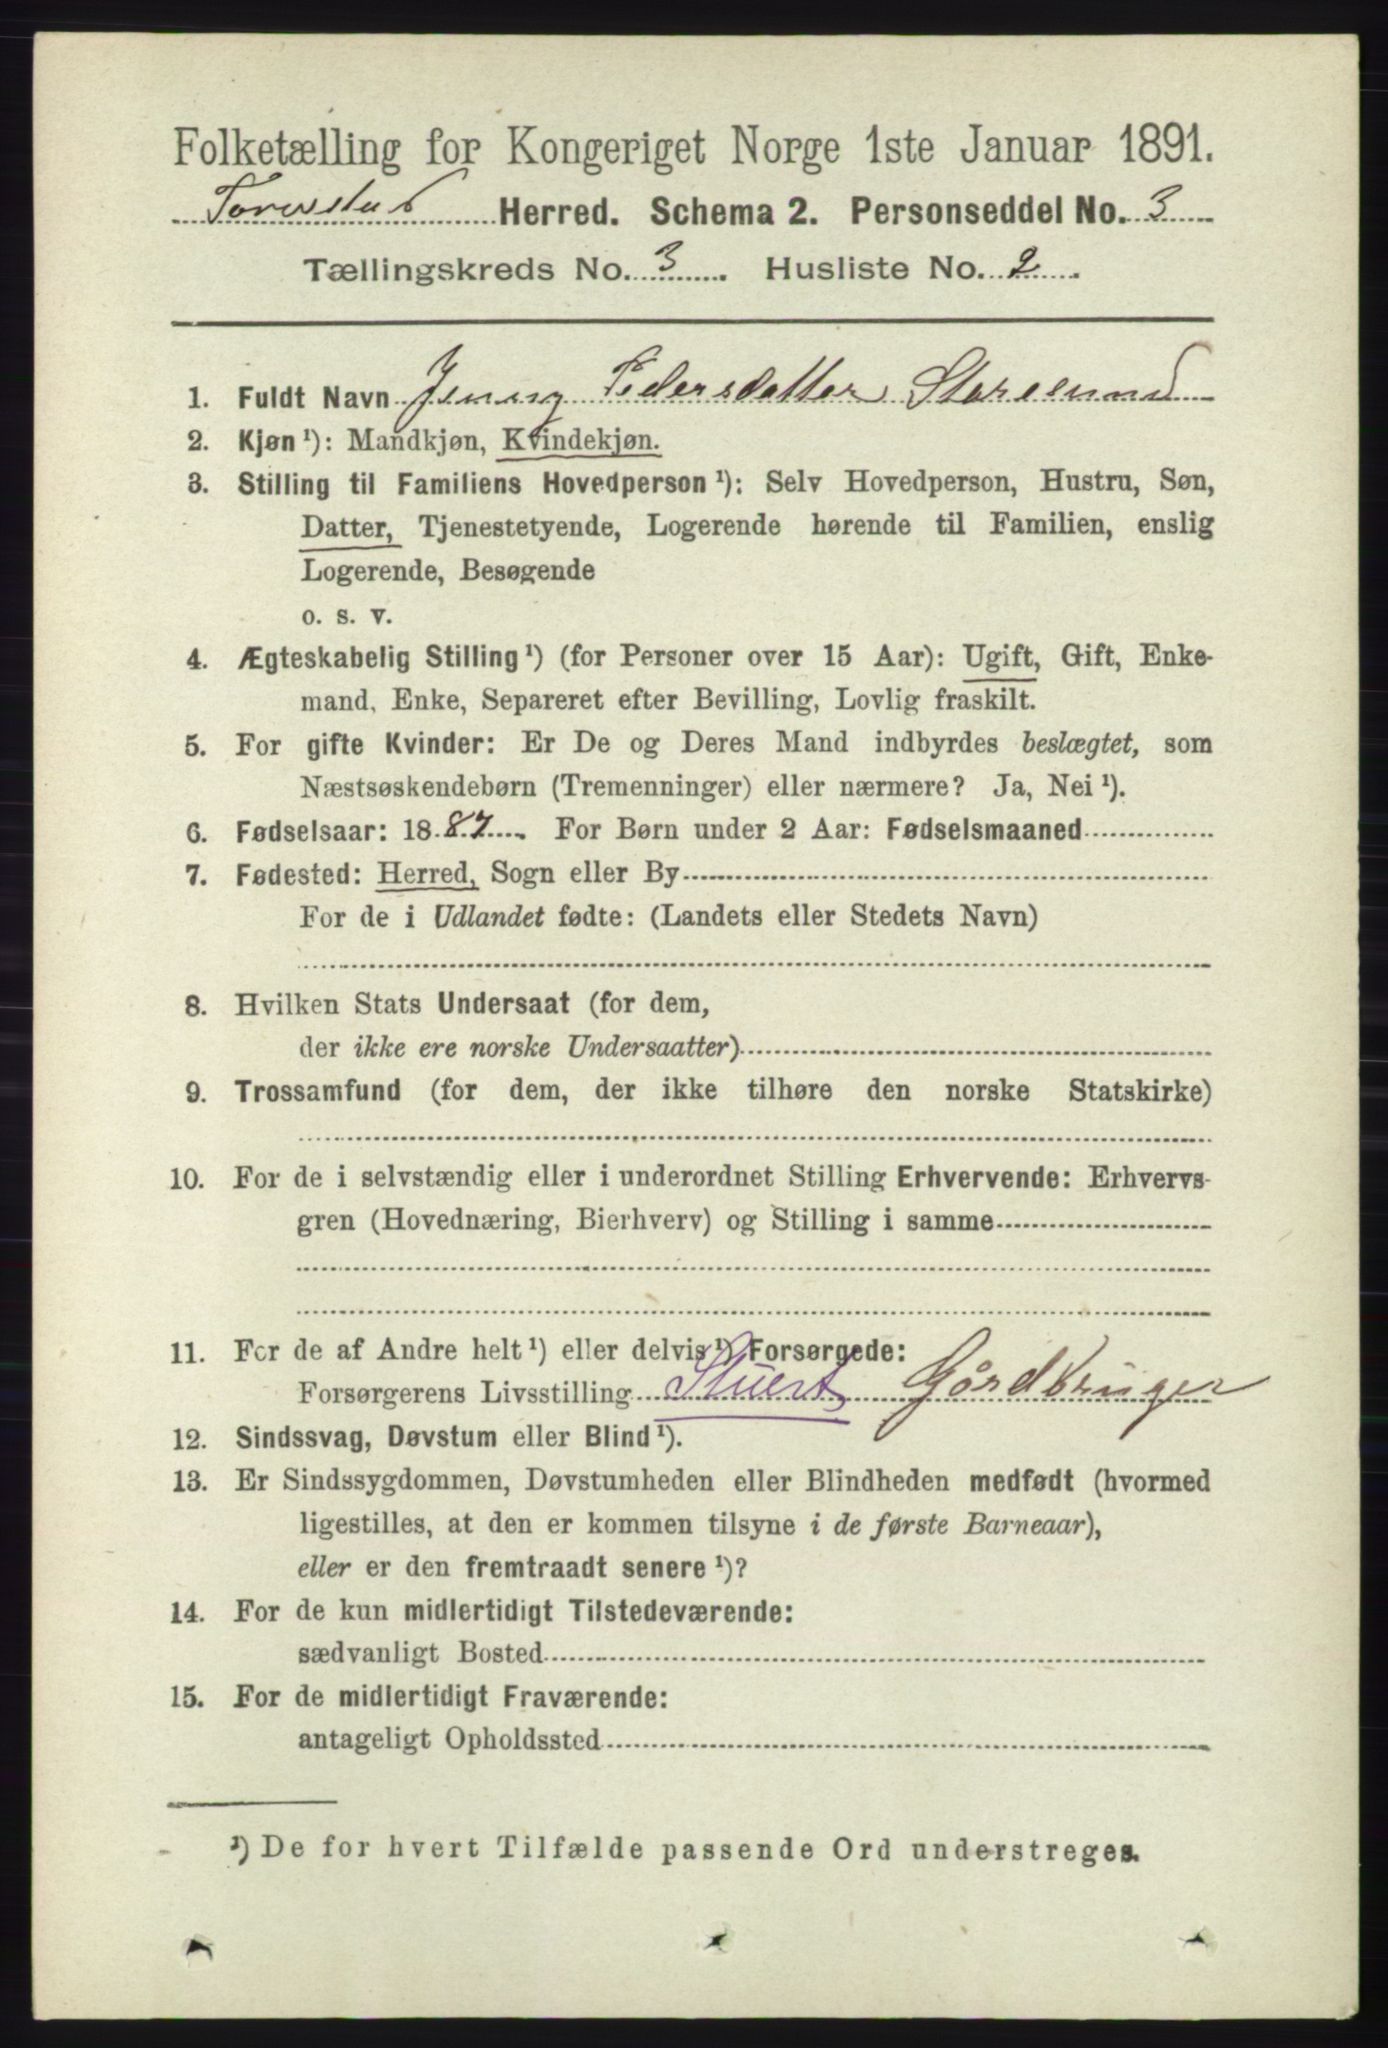 Folketælling for Kongeriget Norge 1ste Januar 1891.
Torrestad Herred. Schema 2. Personseddel No. 3
Tællingskreds No. 3. Husliste No. 2.
1. Fuldt Navn Jenny Pedersdatter Storelund
2. Kjøn ¹): Mandkjøn, Kvindekjøn.
3. Stilling til Familiens Hovedperson ¹): Selv Hovedperson, Hustru, Søn,
Datter, Tjenestetyende, Logerende hørende til Familien, enslig
Logerende, Besøgende
o. s. v.
4. Ægteskabelig Stilling ¹) (for Personer over 15 Aar): Ugift, Gift, Enke-
mand, Enke, Separeret efter Bevilling, Lovlig fraskilt.
5. For gifte Kvinder: Er De og Deres Mand indbyrdes beslægtet, som
Næstsøskendebørn (Tremenninger) eller nærmere? Ja, Nei ¹).
6. Fødselsaar: 1887. For Børn under 2 Aar: Fødselsmaaned
7. Fødested: Herred, Sogn eller By
For de i Udlandet fødte: (Landets eller Stedets Navn)
8. Hvilken Stats Undersaat (for dem,
der ikke ere norske Undersaatter)
9. Trossamfund (for dem, der ikke tilhøre den norske Statskirke)
10. For de i selvstændig eller i underordnet Stilling Erhvervende: Erhvervs-
gren (Hovednæring, Bierhverv) og Stilling i samme
11. For de af Andre helt ¹) eller delvis ¹) Forsørgede:
Forsørgerens Livsstilling Gårdbruger
12. Sindssvag, Døvstum eller Blind ¹).
13. Er Sindssygdommen, Døvstumheden eller Blindheden medfødt (hvormed
ligestilles, at den er kommen tilsyne i de første Barneaar),
eller er den fremtraadt senere ¹)?
14. For de kun midlertidigt Tilstedeværende:
sædvanligt Bosted
15. For de midlertidigt Fraværende:
antageligt Opholdssted
¹) De for hvert Tilfælde passende Ord understreges.